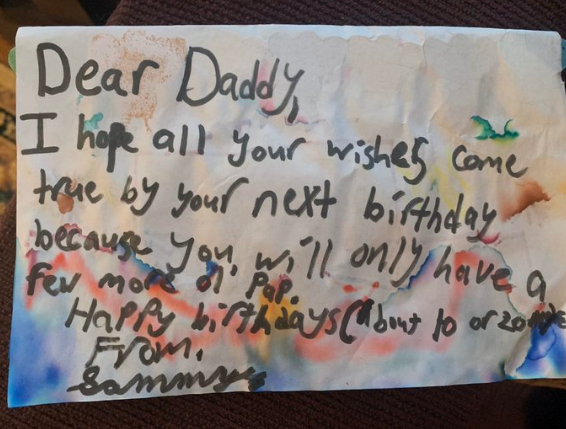 Dear Daddy,
I hope all your wishes come
true by your next birthday
because you will only have a
few more ol' Pap.
Happy birthdays (About 10 or 20
From,
Sammy